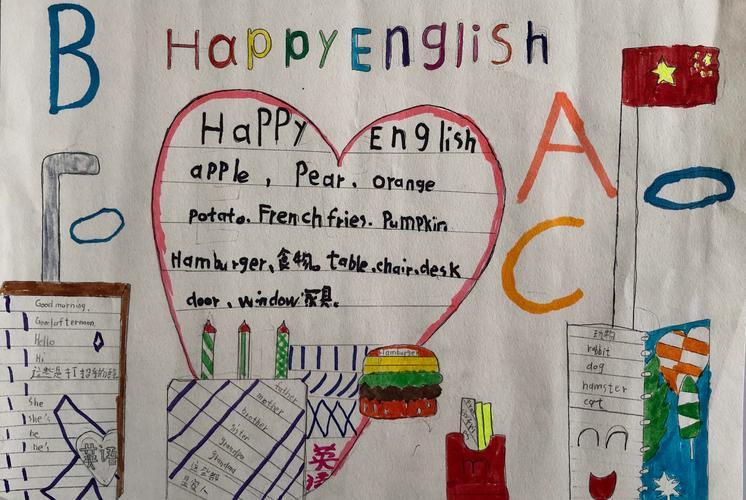 B
Happy English
A
C
Happy English
apple, Pear. orange
potato. French fries. Pumpkin
Hamburger、食物。table.chair.desk
door、window 家具。
Good morning.
Good afternoon
Hello
Hi
这些是打招乎的语
She
She's
he
he's
英语
father
mother
brother
sister
grandpa
grandma
这些都
是家人
英语
Hamburger
动物
rabbit
dog
hamster
cat